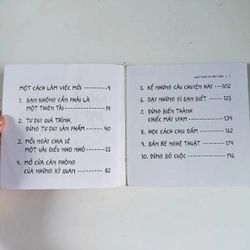 MỘT CÁCH LÀM VIỆC MỚI — 9
1. BẠN KHÔNG CẦN PHẢI LÀ
MỘT THIÊN TÀI — 14
2. TƯ DUY QUÁ TRÌNH,
ĐỪNG TƯ DUY SẢN PHẨM — 40
3. MỖI NGÀY CHIA SẺ
MỘT VÀI ĐIỀU NHO NHỎ — 55
4. MỞ CỬA CĂN PHÒNG
CỦA NHỮNG KÌ QUAN — 82
5. KỂ NHỮNG CÂU CHUYỆN HAY — 102
6. DẠY NHỮNG GÌ BẠN BIẾT — 125
7. ĐỪNG BIẾN THÀNH
CHIẾC MÁY SPAM — 134
8. HỌC CÁCH CHỊU ĐẤM — 162
9. BÁN RẺ NGHỆ THUẬT — 174
10. ĐỪNG BỎ CUỘC — 196